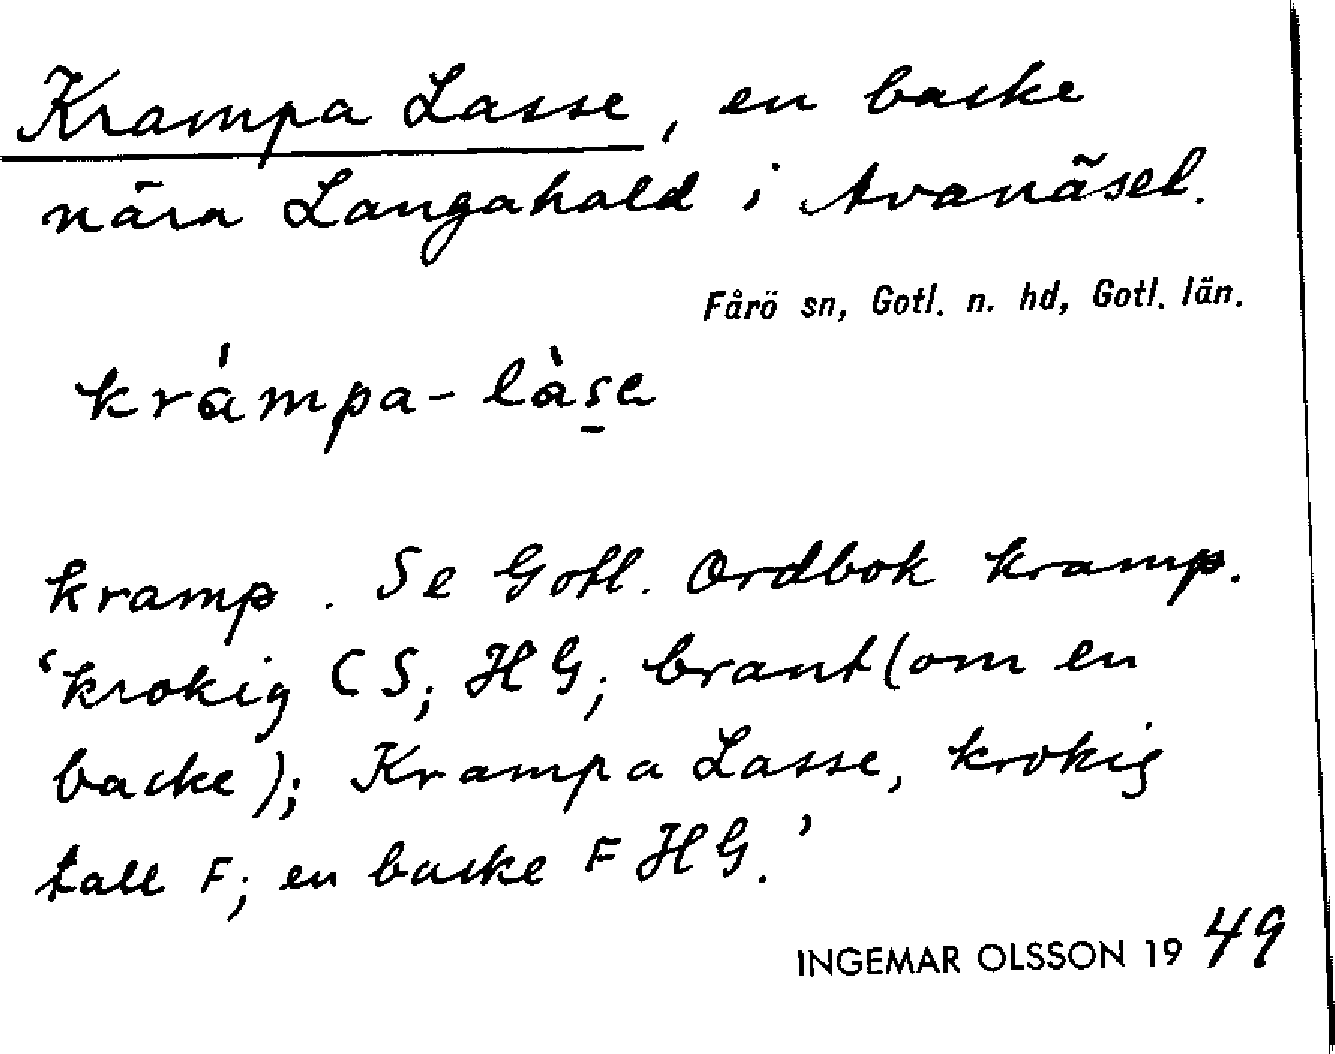 Krampa Lasse, en backe
nära Langahald i Avanäset.
Fårö sn, Gotl. n. hd, Gotl. län.
krámpa-làse
kramp. Se Gotl. Ordbok kramp.
‘krokig CS; HG; brant (om en
backe); Krampa Lasse, krokig
tall F; en backe F HG.’
INGEMAR OLSSON 1949